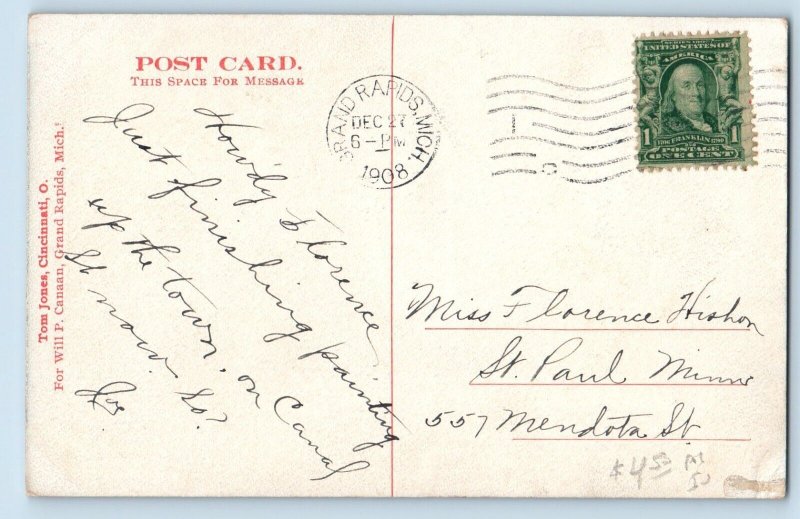 POST CARD.
THIS SPACE FOR MESSAGE
Howdy Florence
Just finishing painting
up the town, on Canal
St now. So?
Joe
Tom Jones, Cincinnati, O.
For Will P. Canaan, Grand Rapids, Mich.
GRAND RAPIDS, MICH.
DEC 27
6-PM
1908
1
SERIES 1902
UNITED STATES OF
AMERICA
1706 FRANKLIN 1790
1 1
POSTAGE
ONE CENT
Miss Florence Hishon
St. Paul Minn
557 Mendota St.
$4.50